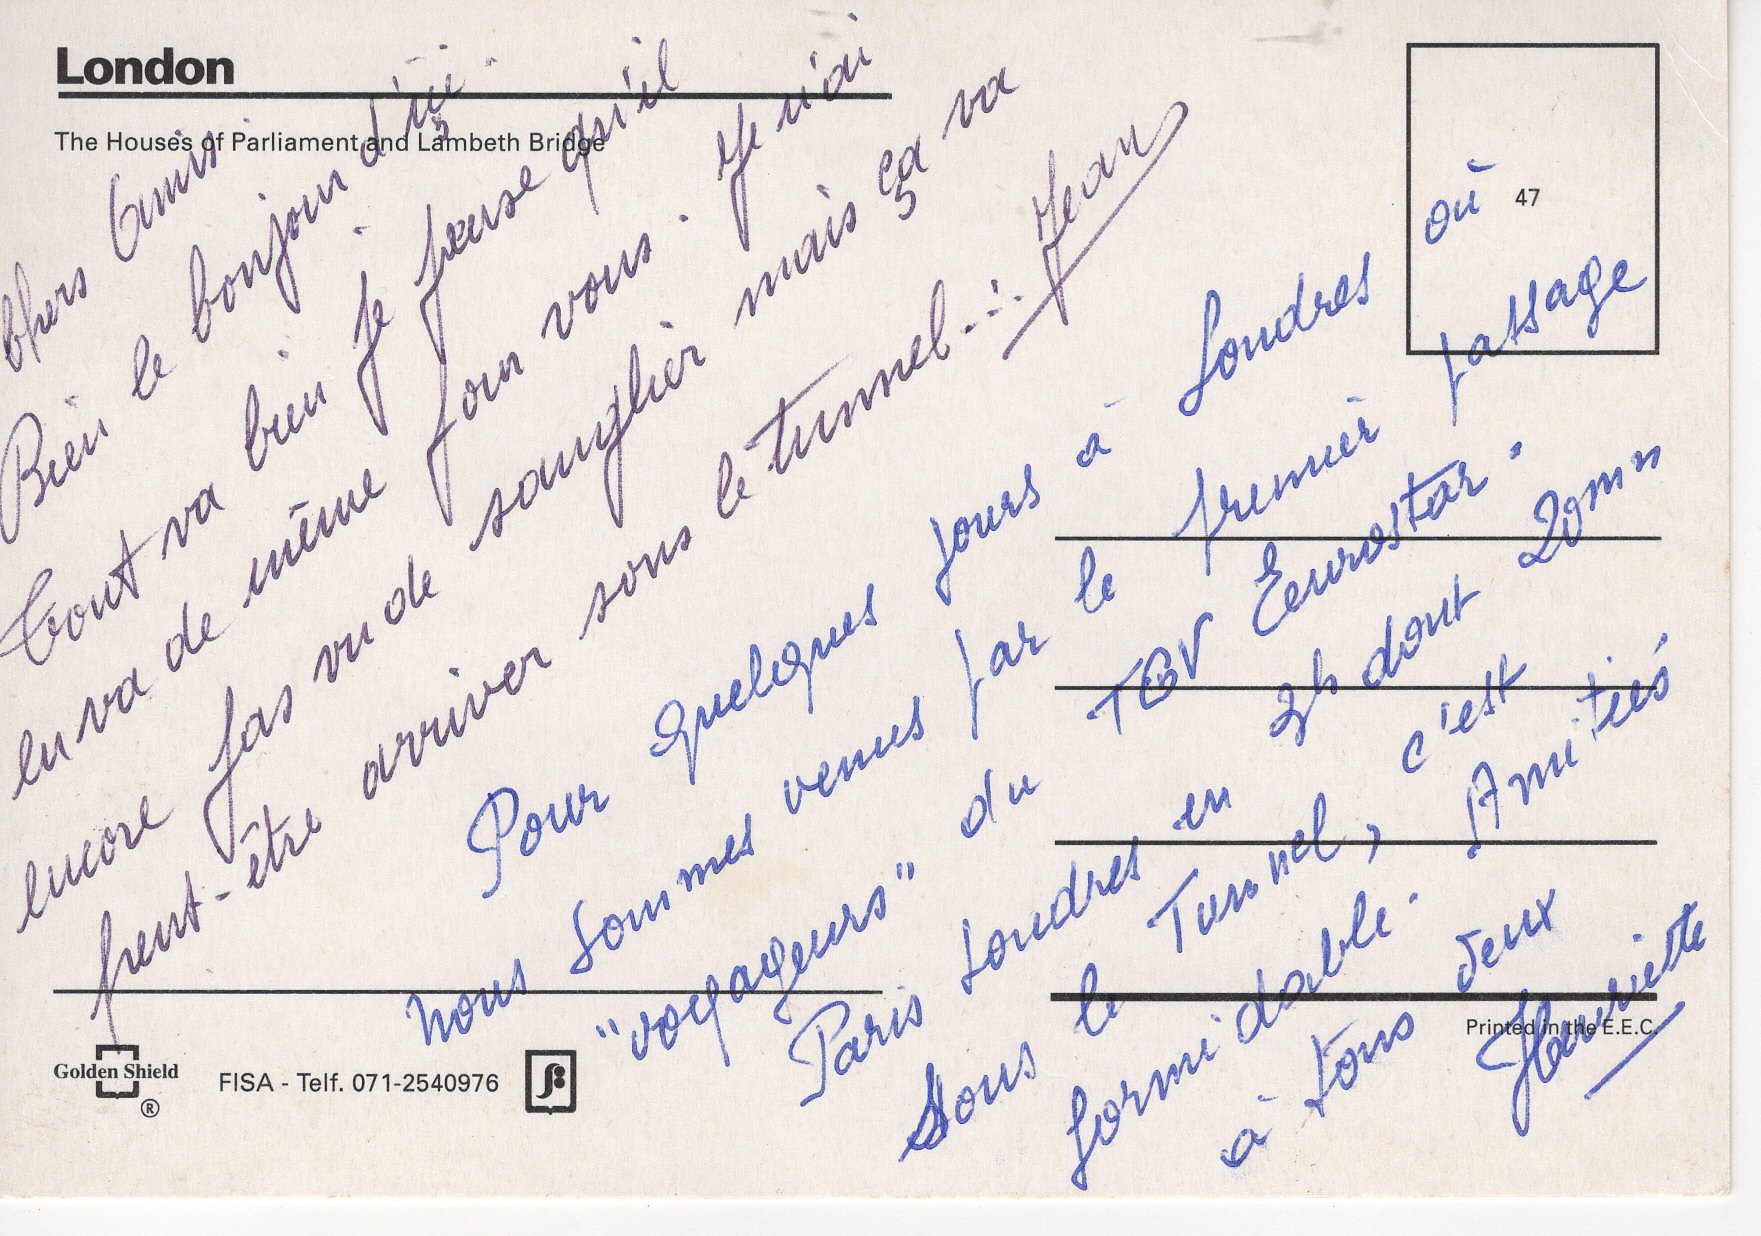 London
The Houses of Parliament and Lambeth Bridge
47
Chers Amis.
Bien le bonjour d'ici.
Tout va bien je pense qu'il
en va de même pour vous. Je n'ai
encore pas vu de sanglier mais ça va
peut-être arriver sous le tunnel...
Jean
Pour quelques jours à Londres où
nous sommes venus par le premier passage
"voyageurs" du TGV Eurostar.
Paris Londres en 3h dont 20mn
Sous le Tunnel, c'est
formidable. Amitiés
à tous deux
Henriette
Golden Shield
®
FISA - Telf. 071-2540976
Printed in the E.E.C.